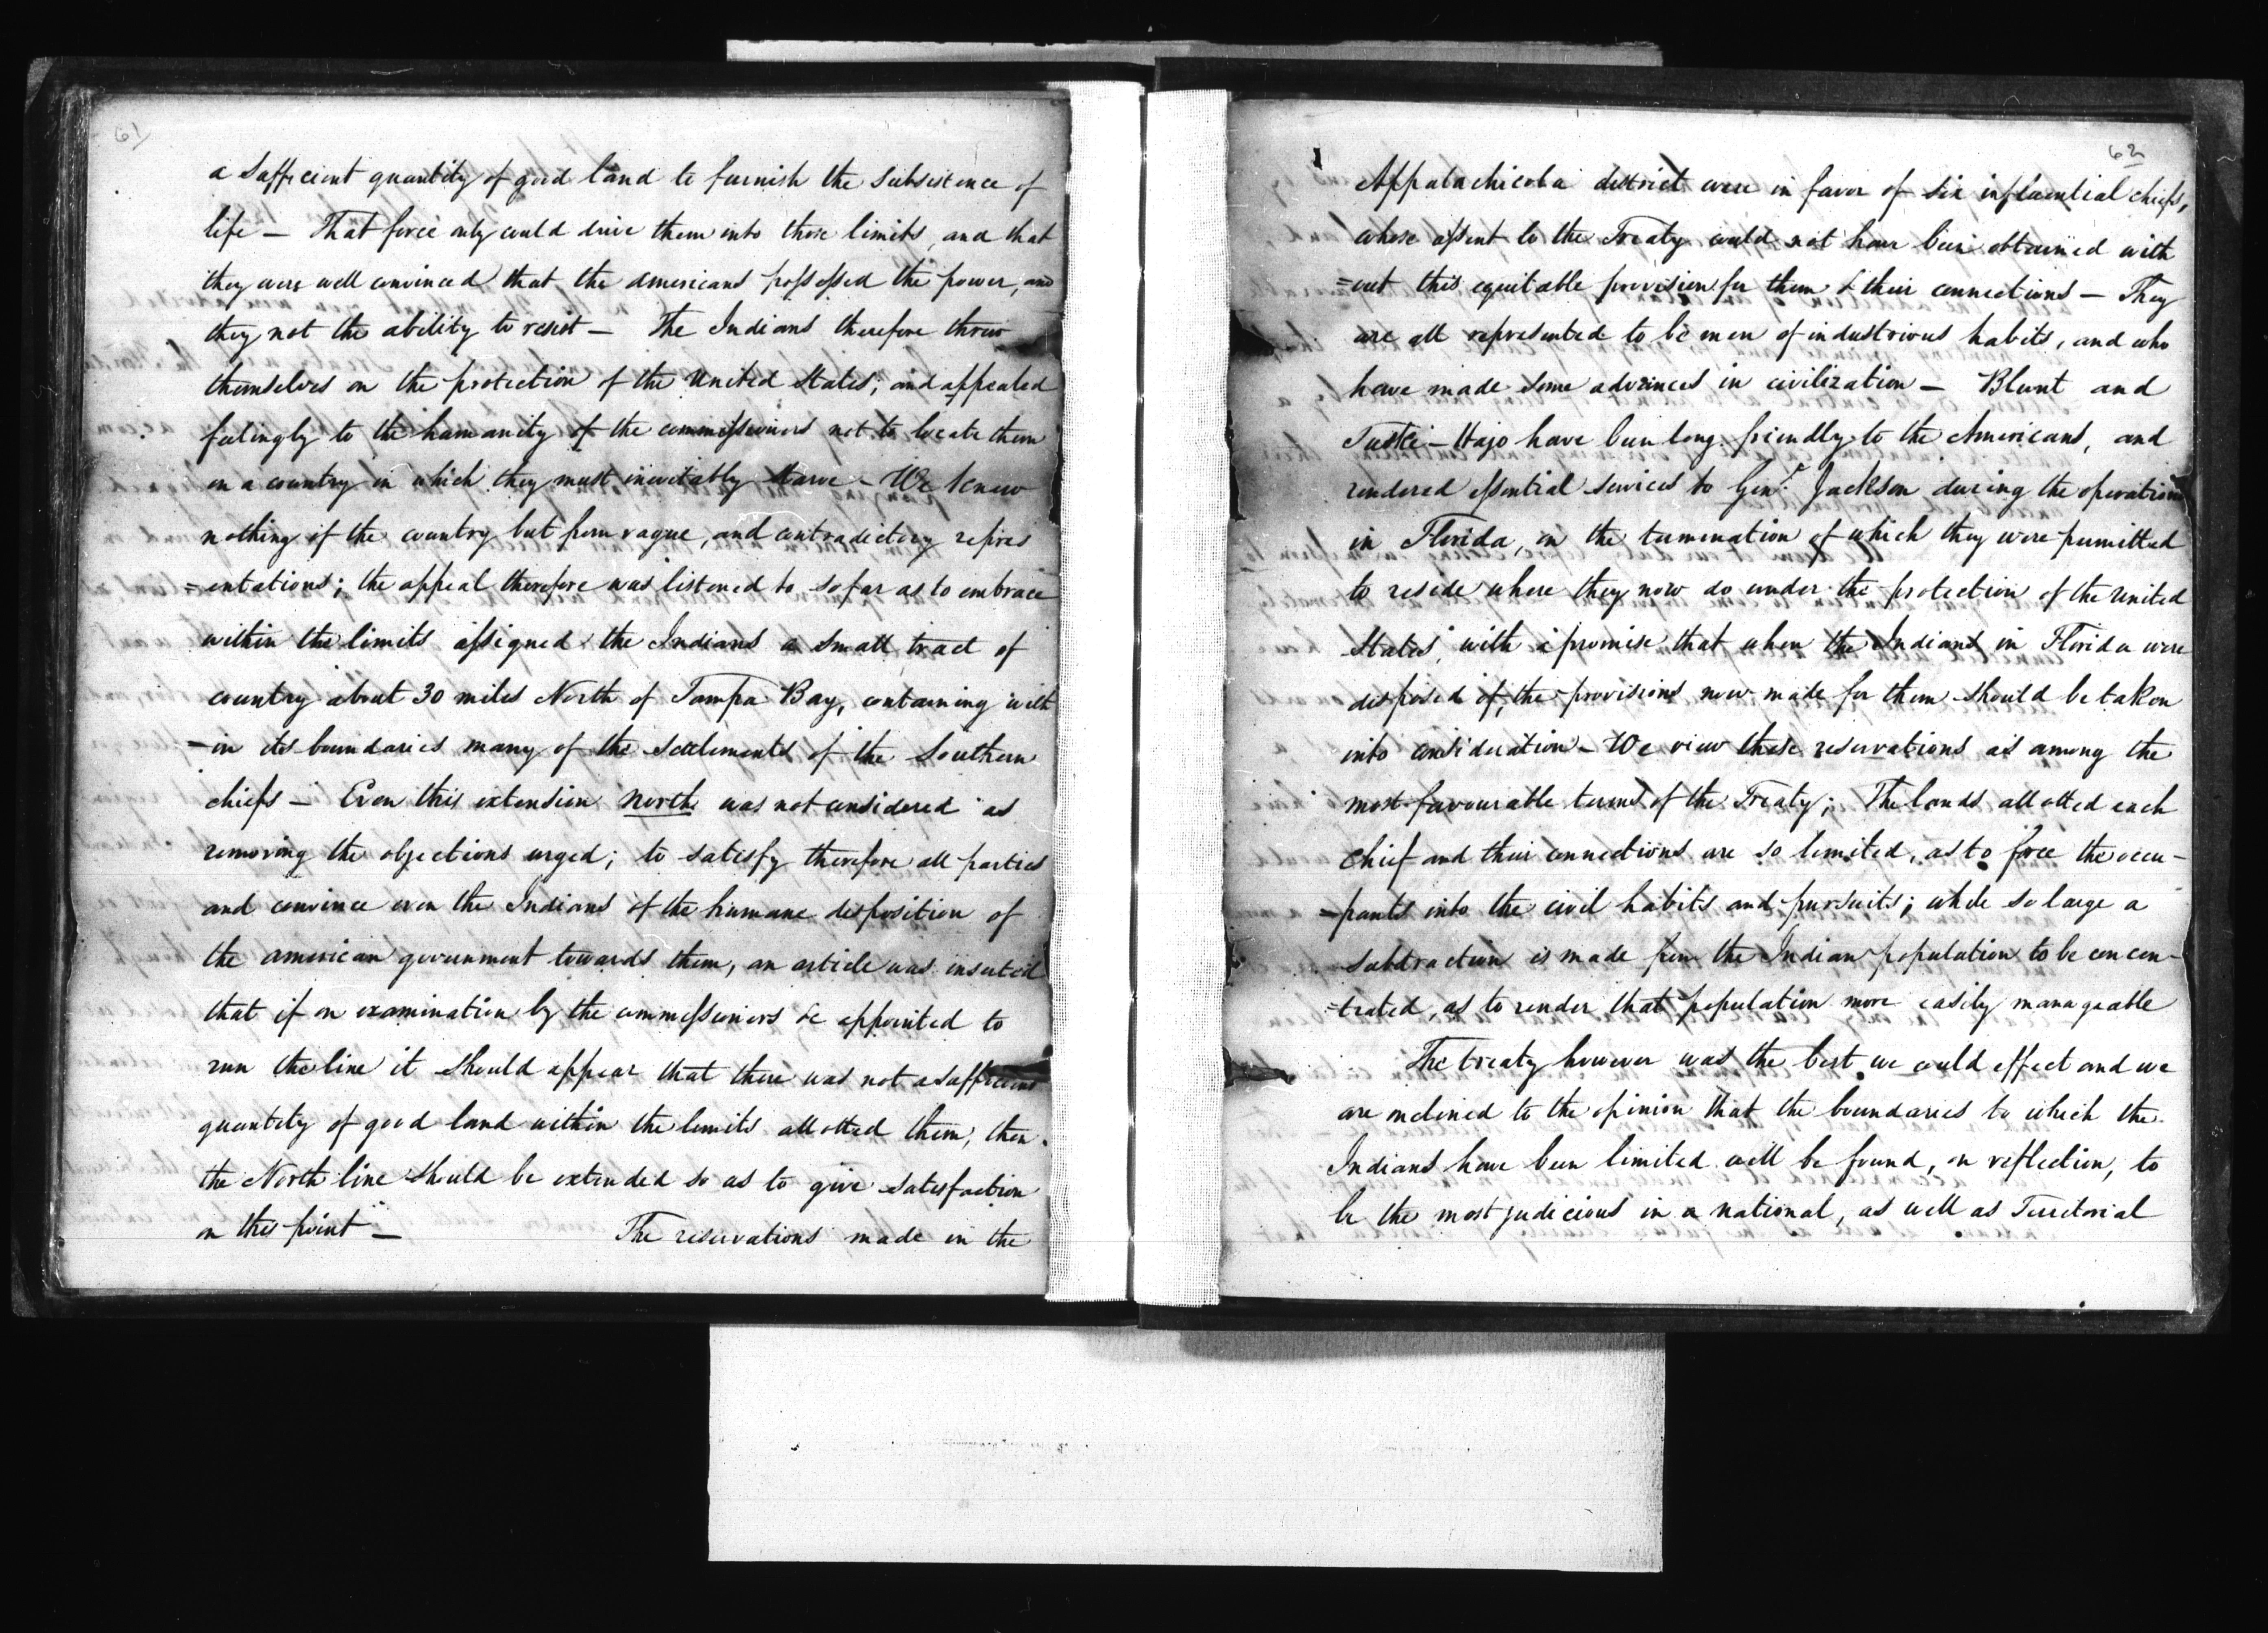 61
a Sufficient quantity of good land to furnish the subsistence of
life — That force only could drive them into those limits, and that
they were well convinced that the americans possessed the power, and
they not the ability to resist — The Indians therefore threw
themselves on the protection of the United States; and appealed
feelingly to the humanity of the commissioners not to locate them
in a country in which they must inevitably starve — We knew
nothing of the country but from vague, and contradictory repres
=entations; the appeal therefore was listened to so far as to embrace
within the limits assigned the Indians a small tract of
country about 30 miles North of Tampa Bay, containing with
=in its boundaries many of the settlements of the Southern
chiefs — Even this extension North was not considered as
removing the objections urged; to satisfy therefore all parties
and convince even the Indians of the humane disposition of
the american government towards them, an article was inserted
that if on examination by the commissioners be appointed to
run the line it should appear that there was not a sufficient
quantity of good land within the limits allotted them, then
the North line should be extended so as to give satisfaction
on this point — The reservations made in the
62
Appalachicola district were in favor of six influential chiefs,
whose assent to the Treaty could not have been obtained with
=out this equitable provision for them & their connections — They
are all represented to be men of industrious habits, and who
have made some advances in civilization — Blunt and
Tuski-Hajo have been long friendly to the Americans, and
rendered essential services to Genl. Jackson during the operations
in Florida, on the termination of which they were permitted
to reside where they now do under the protection of the United
States, with a promise that when the Indians in Florida were
disposed of, the provisions now made for them should be taken
into consideration — We view these reservations as among the
most favourable terms of the Treaty; The lands allotted each
chief and their connections are so limited, as to force the occu-
=pants into the civil habits and pursuits; while so large a
subtraction is made from the Indian population to be concen-
=trated, as to render that population more easily manageable
The treaty however was the best we could effect and we
are inclined to the opinion that the boundaries to which the
Indians have been limited will be found, on reflection, to
be the most judicious in a national, as well as Territorial